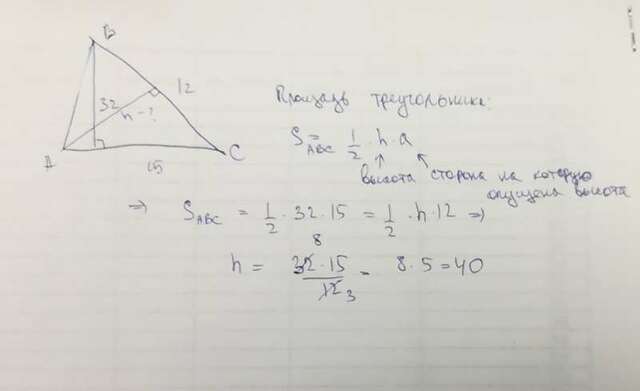 B
32
12
h - ?
A
15
C
Площадь треугольника:
S_ABC = 1/2 · h · a
высота сторона на которую
опущена высота
⇒ S_ABC = 1/2 · 32 · 15 = 1/2 · h · 12 ⇒
8
h = 32 · 15 / 12 = 8 · 5 = 40
3